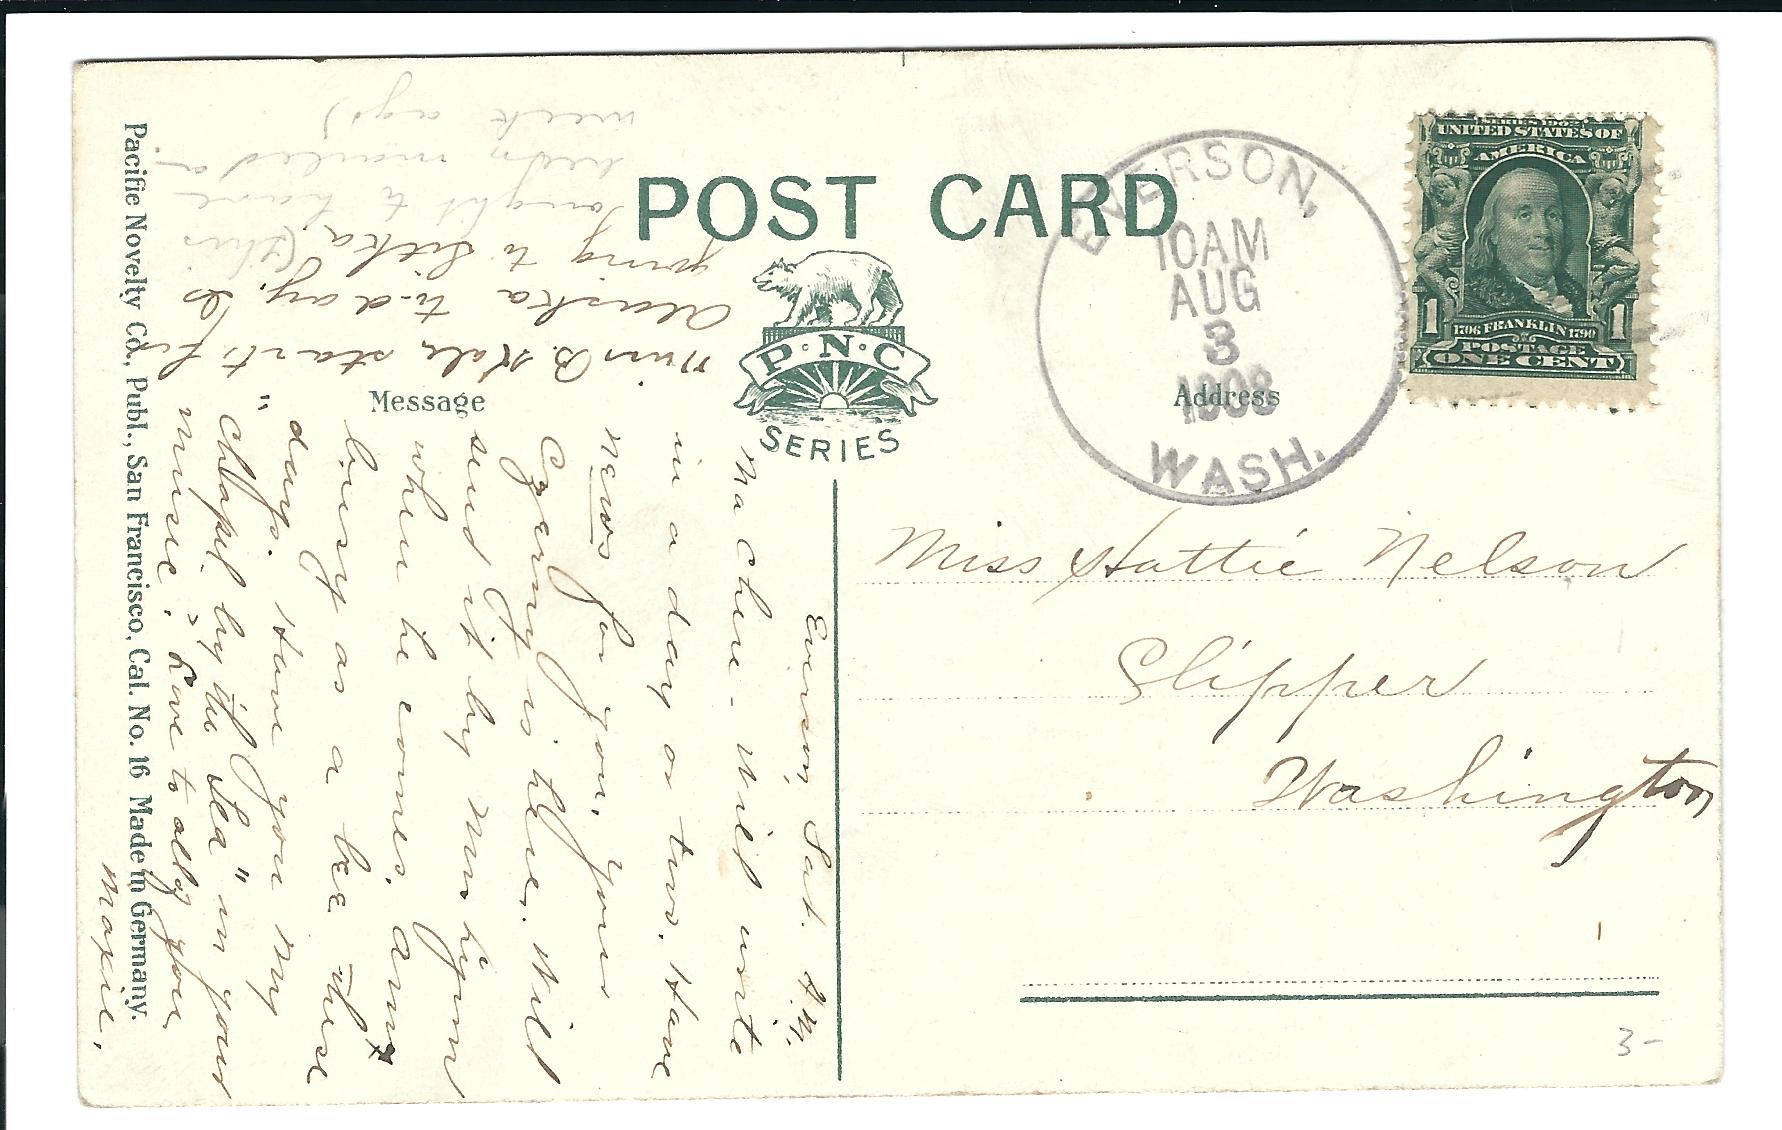 POST CARD
P·N·C
SERIES
Message
Address
EVERSON,
10AM
AUG
3
1908
WASH.
SERIES 1902
UNITED STATES OF
AMERICA
1 1706 FRANKLIN 1790 1
POSTAGE
ONE CENT
Miss Hattie Nelson
Slipper
Washington
3-
Everson, Sat. A.M.
Ma Chere - Will write
in a day or two. Have
news for you. Your
Czerny is here. Will
send it by Mr.
when he comes. Am
busy as a bee these
days. Have you my
"Chapel by the Sea" in your
music? Love to all of you
Maxie.
Miss B. Hale starts for
Alaska to-day. Is
going to Sitka. (This
ought to have
been mailed a
week ago)
Pacific Novelty Co., Publ., San Francisco, Cal. No. 16 Made in Germany.